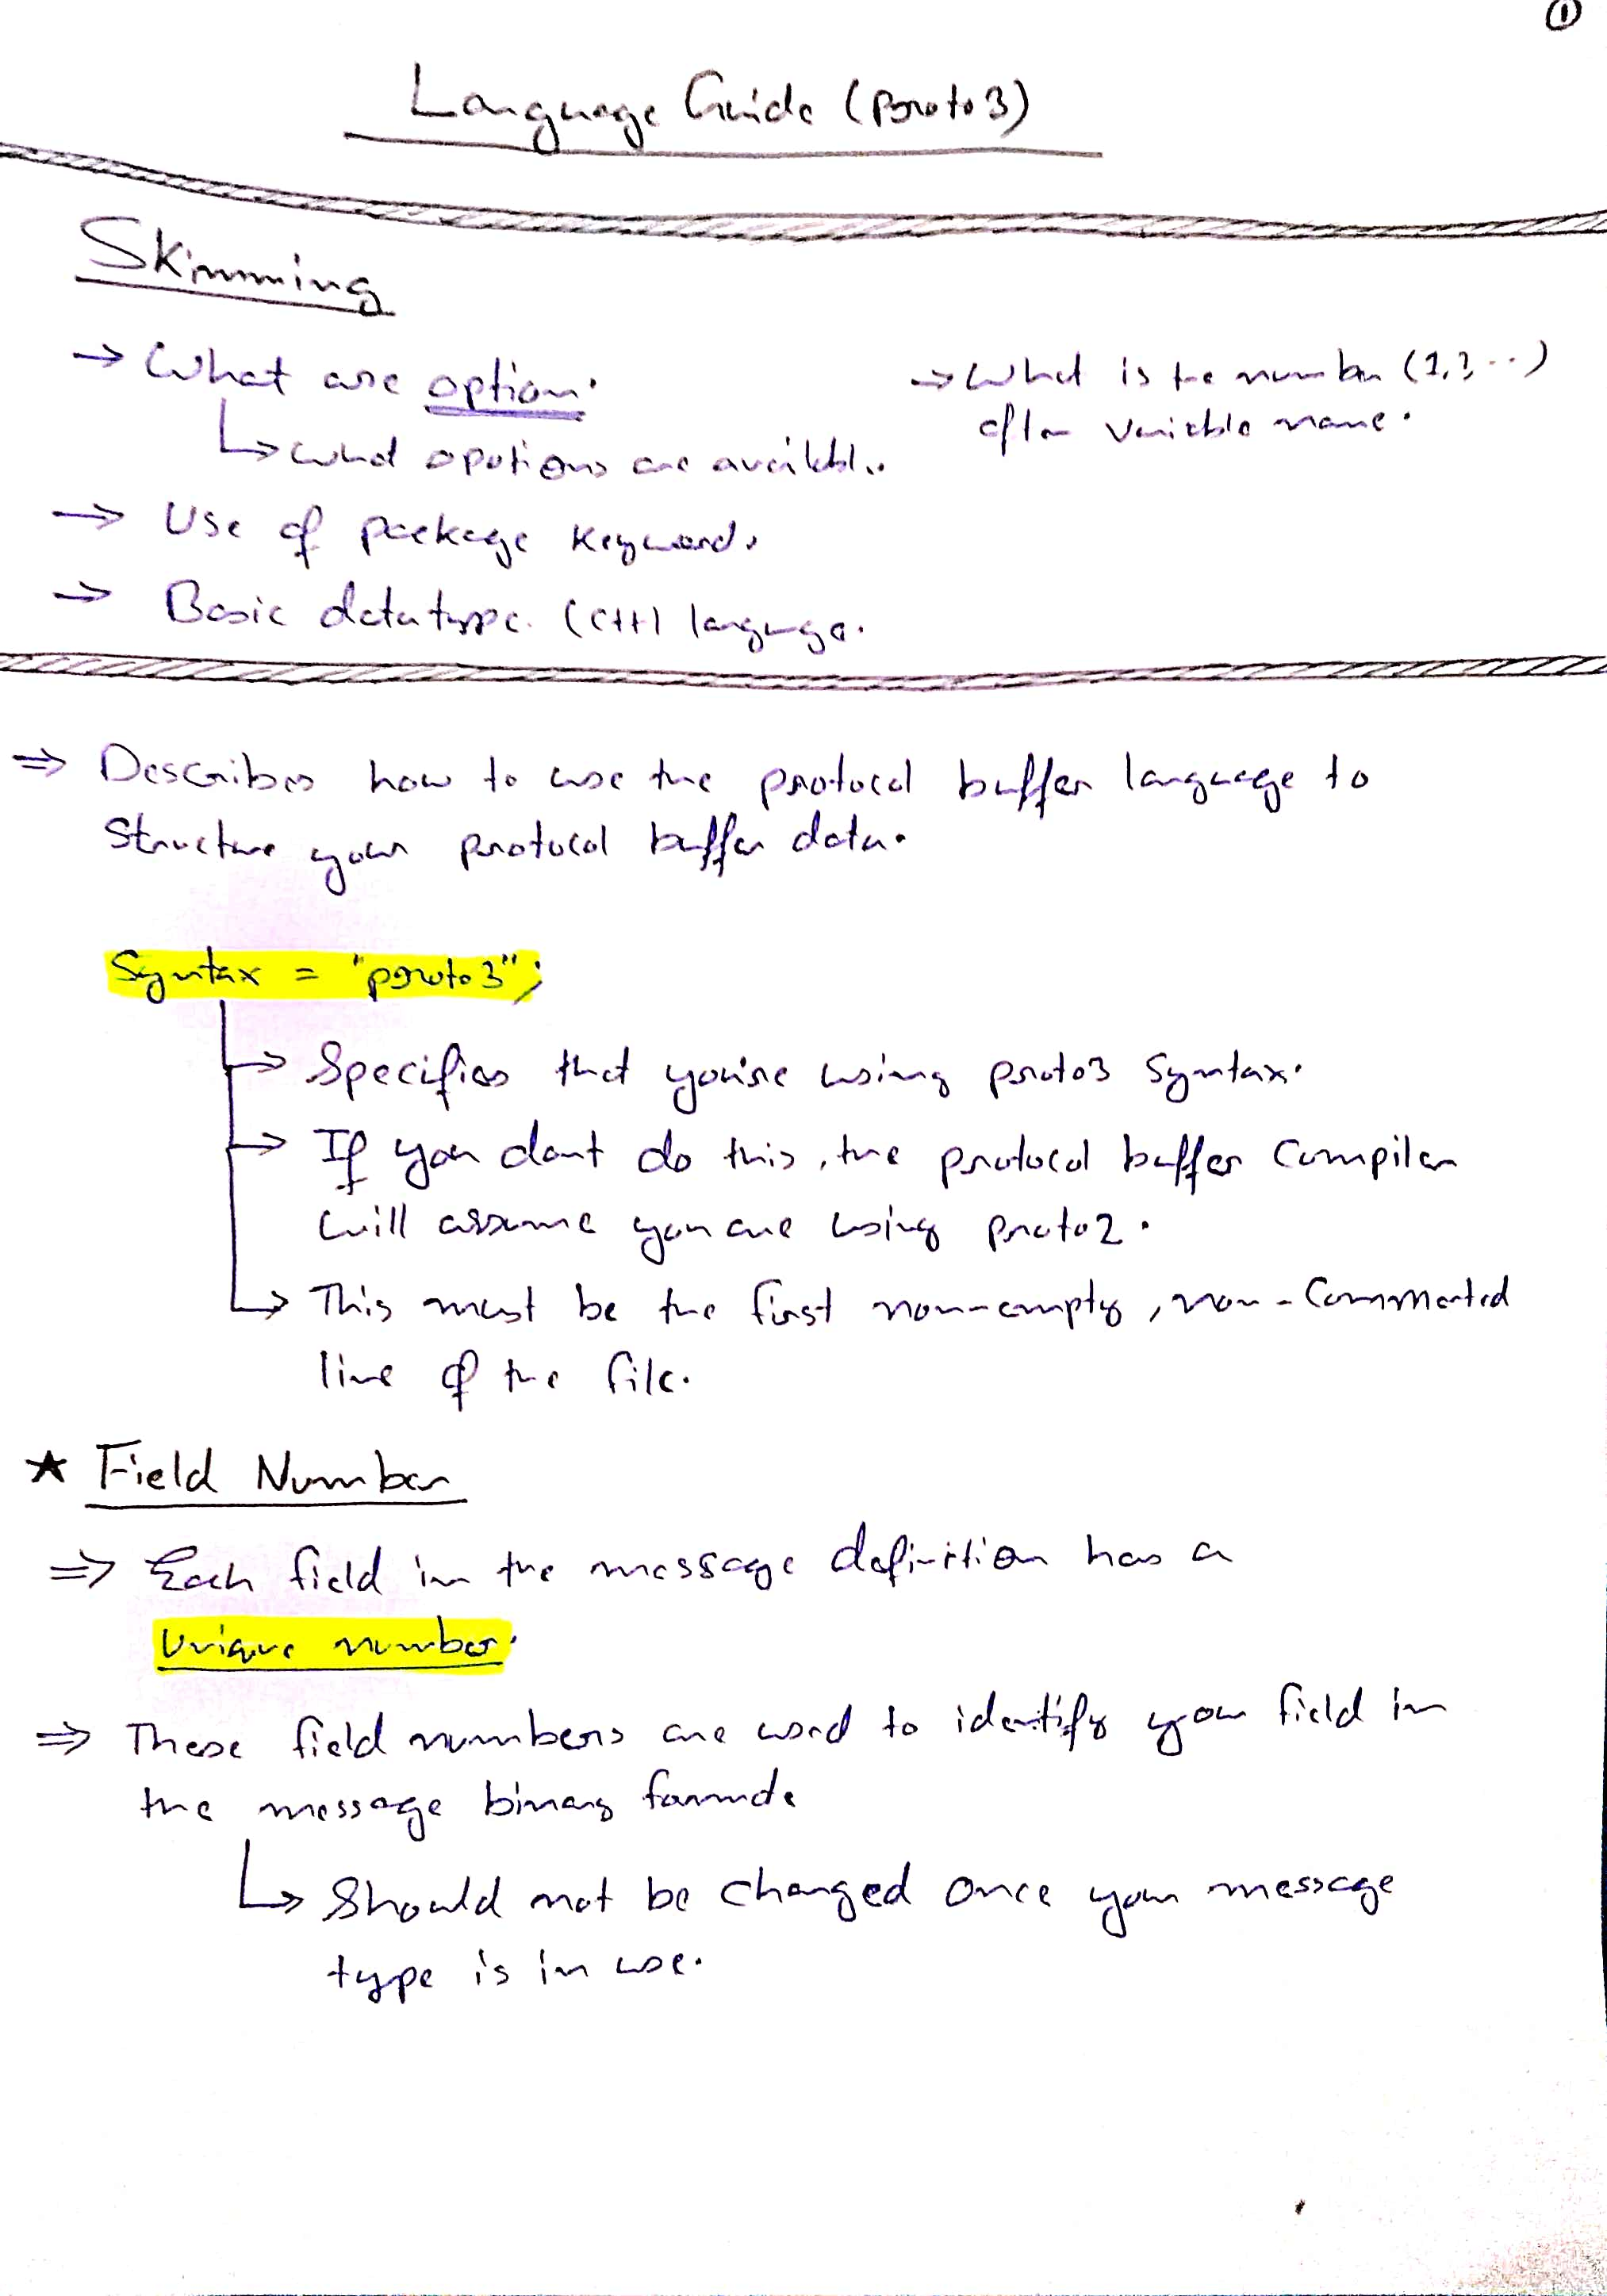 ①
Language Guide (Proto3)
Skimming
→ What are option.
↳ What opotions are available.
→ What is the number (1,2...)
after variable name.
→ Use of package keyword.
→ Basic datatype. (C++) language.
⇒ Describes how to use the protocol buffer language to
Structure your protocol buffer data.
Syntax = "proto3";
→ Specifies that you're using proto3 Syntax.
→ If you dont do this, the protocol buffer Compiler
will assume you are using proto2.
→ This must be the first non-empty, non-Commented
line of the file.
★ Field Number
⇒ Each field in the message definition has a
Unique number.
⇒ These field numbers are used to identify your field in
the message binary format.
↳ Should not be changed once your message
type is in use.